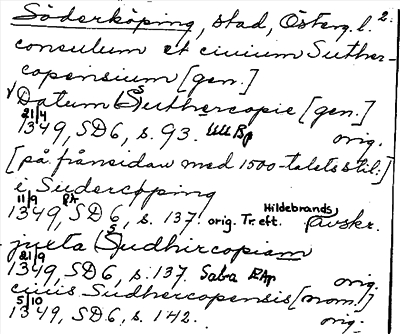 Söderköping, stad, Österg. l. 2.
consulum et civium Suther-
copensium [gen.]
√ Datum (S)uthercopie [gen.]
21/4
1349, SD 6, s. 93. Uu Bp orig.
[på frånsidan med 1500-talets stil:]
i Suderköping
11/9 RA Hildebrands
1349, SD 6, s. 137. orig. Tr. eft. avskr.
juxta (S)udhircopiam
21/9
1349, SD 6, s. 137. Saba RAp orig.
civis Sudhercopensis [nom.]
5/10
1349, SD 6, s. 142. orig.